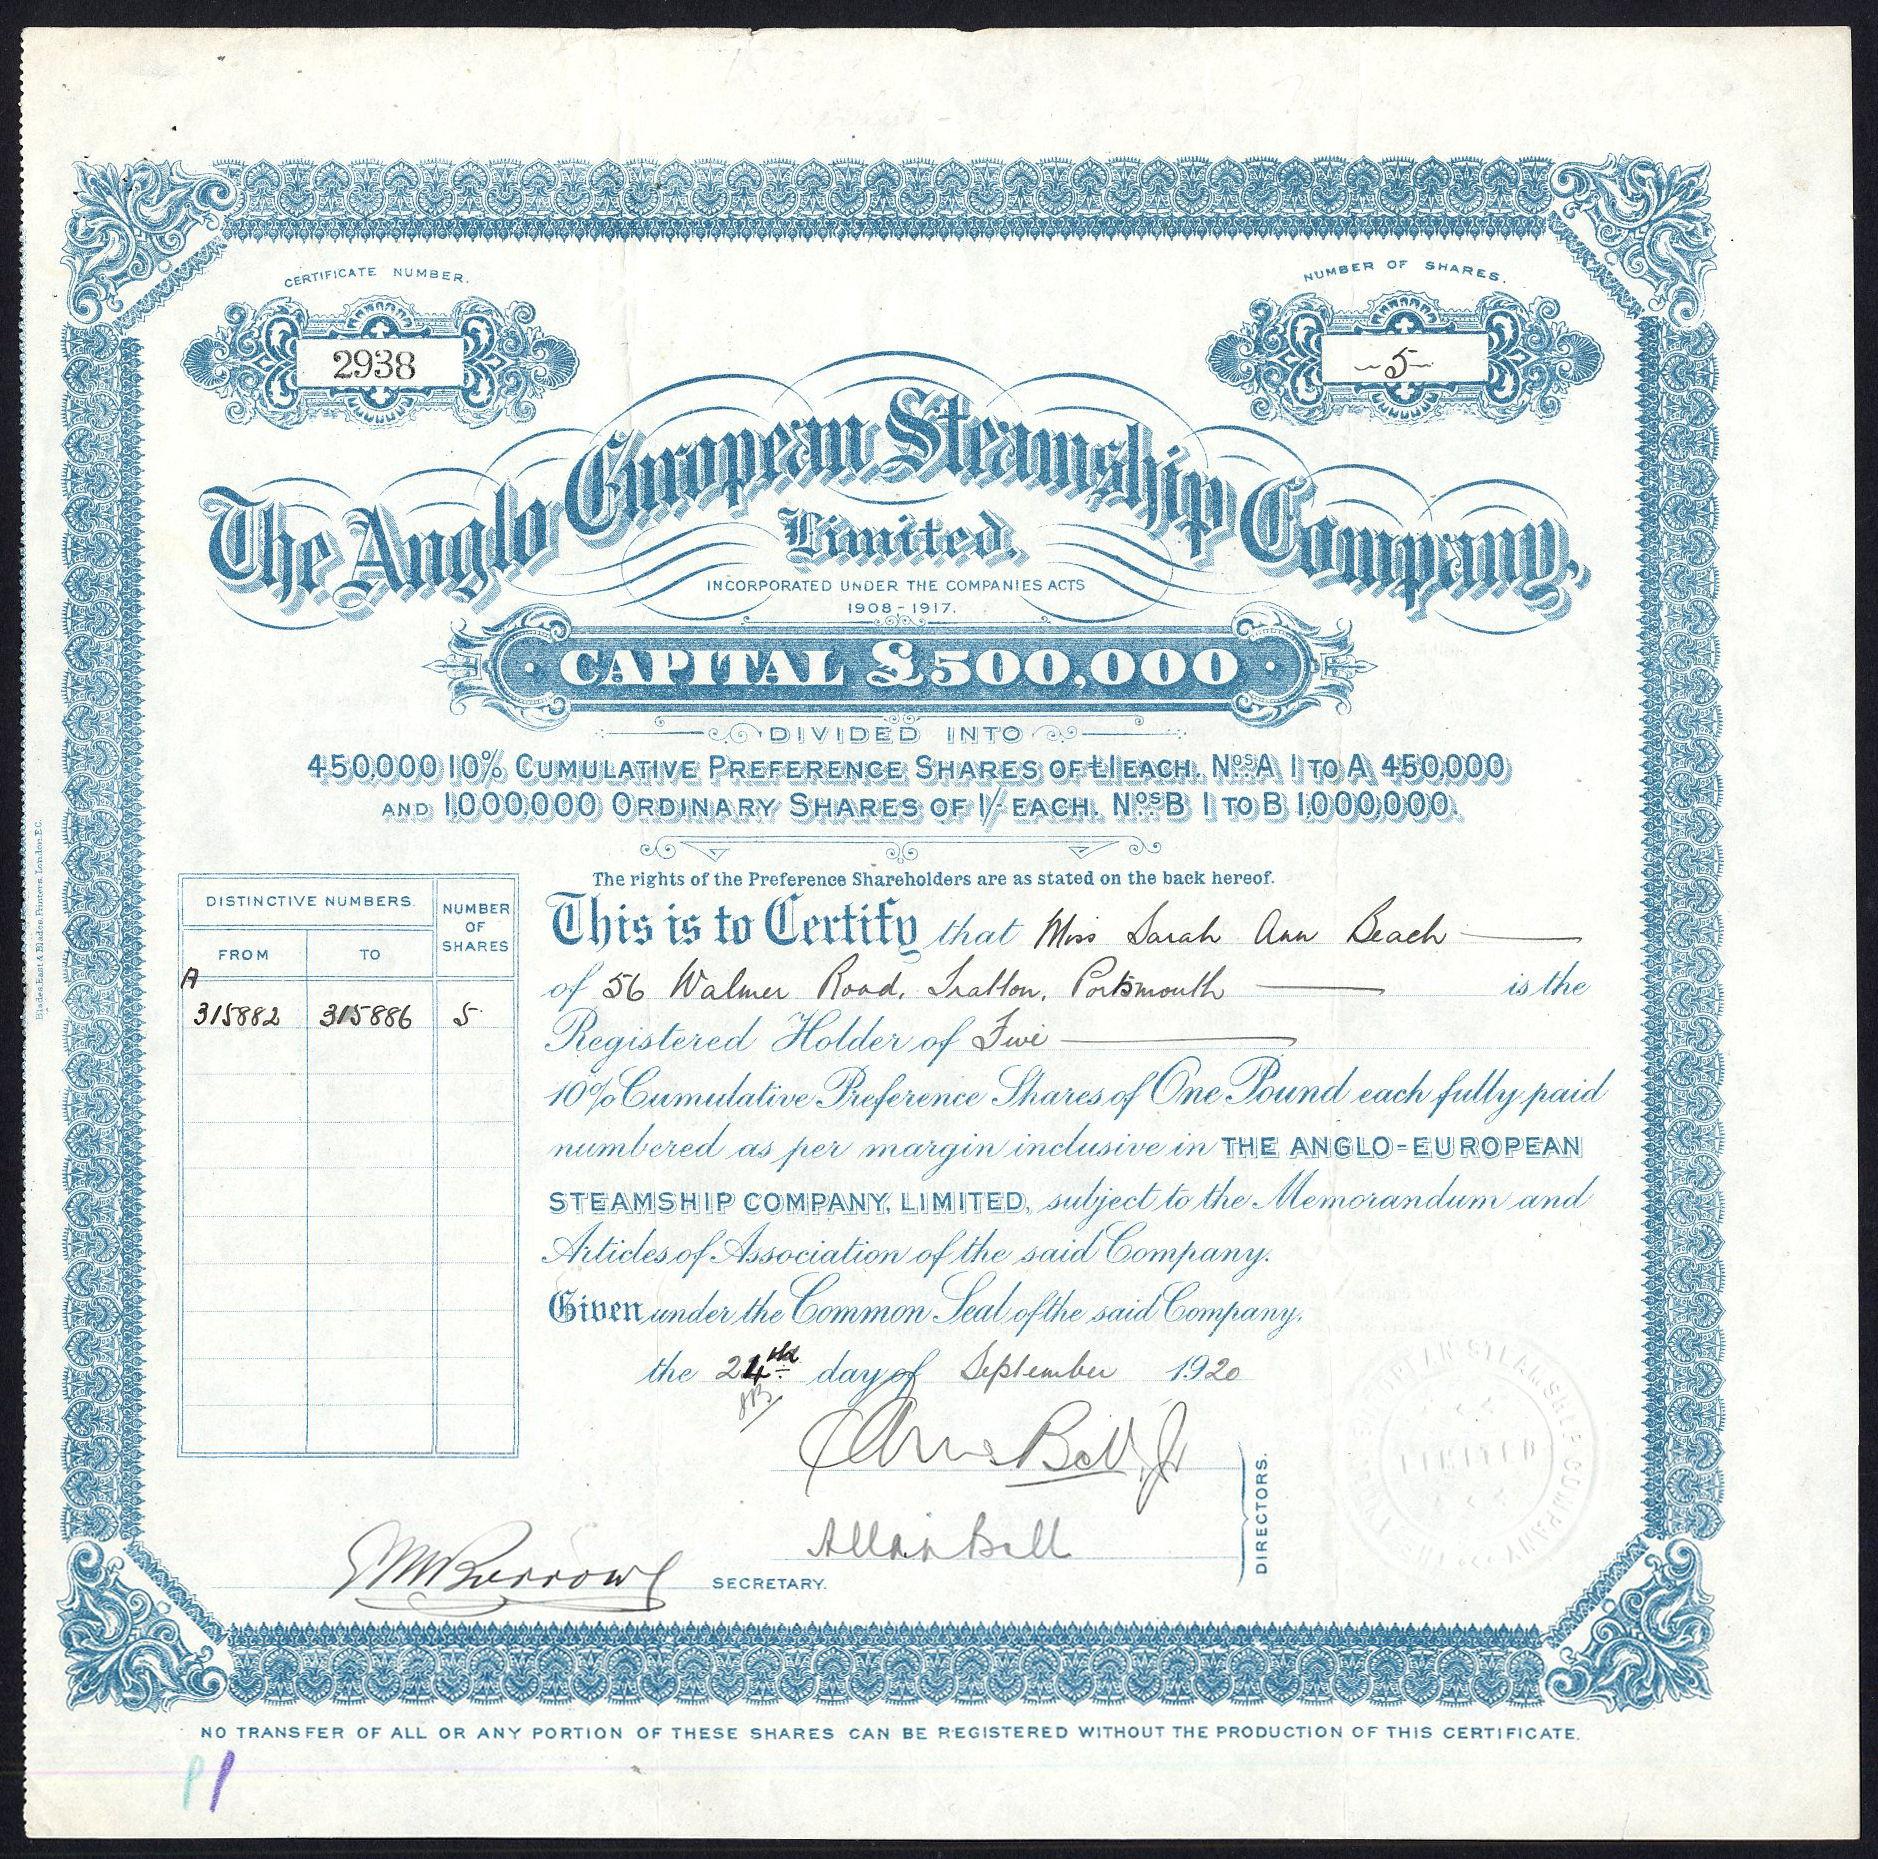 CERTIFICATE NUMBER.
2938
NUMBER OF SHARES.
5
The Anglo European Steamship Company,
Limited.
INCORPORATED UNDER THE COMPANIES ACTS
1908-1917.
CAPITAL £500,000
DIVIDED INTO
450,000 10% CUMULATIVE PREFERENCE SHARES OF £1 EACH. Nos A 1 TO A 450,000
AND 1,000,000 ORDINARY SHARES OF 1/- EACH. Nos B 1 TO B 1,000,000.
The rights of the Preference Shareholders are as stated on the back hereof.
DISTINCTIVE NUMBERS.
NUMBER OF SHARES
FROM TO
A
315882 315886 5
This is to Certify that Miss Sarah Ann Beach
of 56 Walmer Road, Fratton, Portsmouth is the
Registered Holder of Five
10% Cumulative Preference Shares of One Pound each fully paid
numbered as per margin inclusive in THE ANGLO-EUROPEAN
STEAMSHIP COMPANY, LIMITED, subject to the Memorandum and
Articles of Association of the said Company.
Given under the Common Seal of the said Company,
the 24th day of September 1920
Allan Bell
DIRECTORS.
SECRETARY.
NO TRANSFER OF ALL OR ANY PORTION OF THESE SHARES CAN BE REGISTERED WITHOUT THE PRODUCTION OF THIS CERTIFICATE.
Blades, East & Blades, Printers, London, E.C.